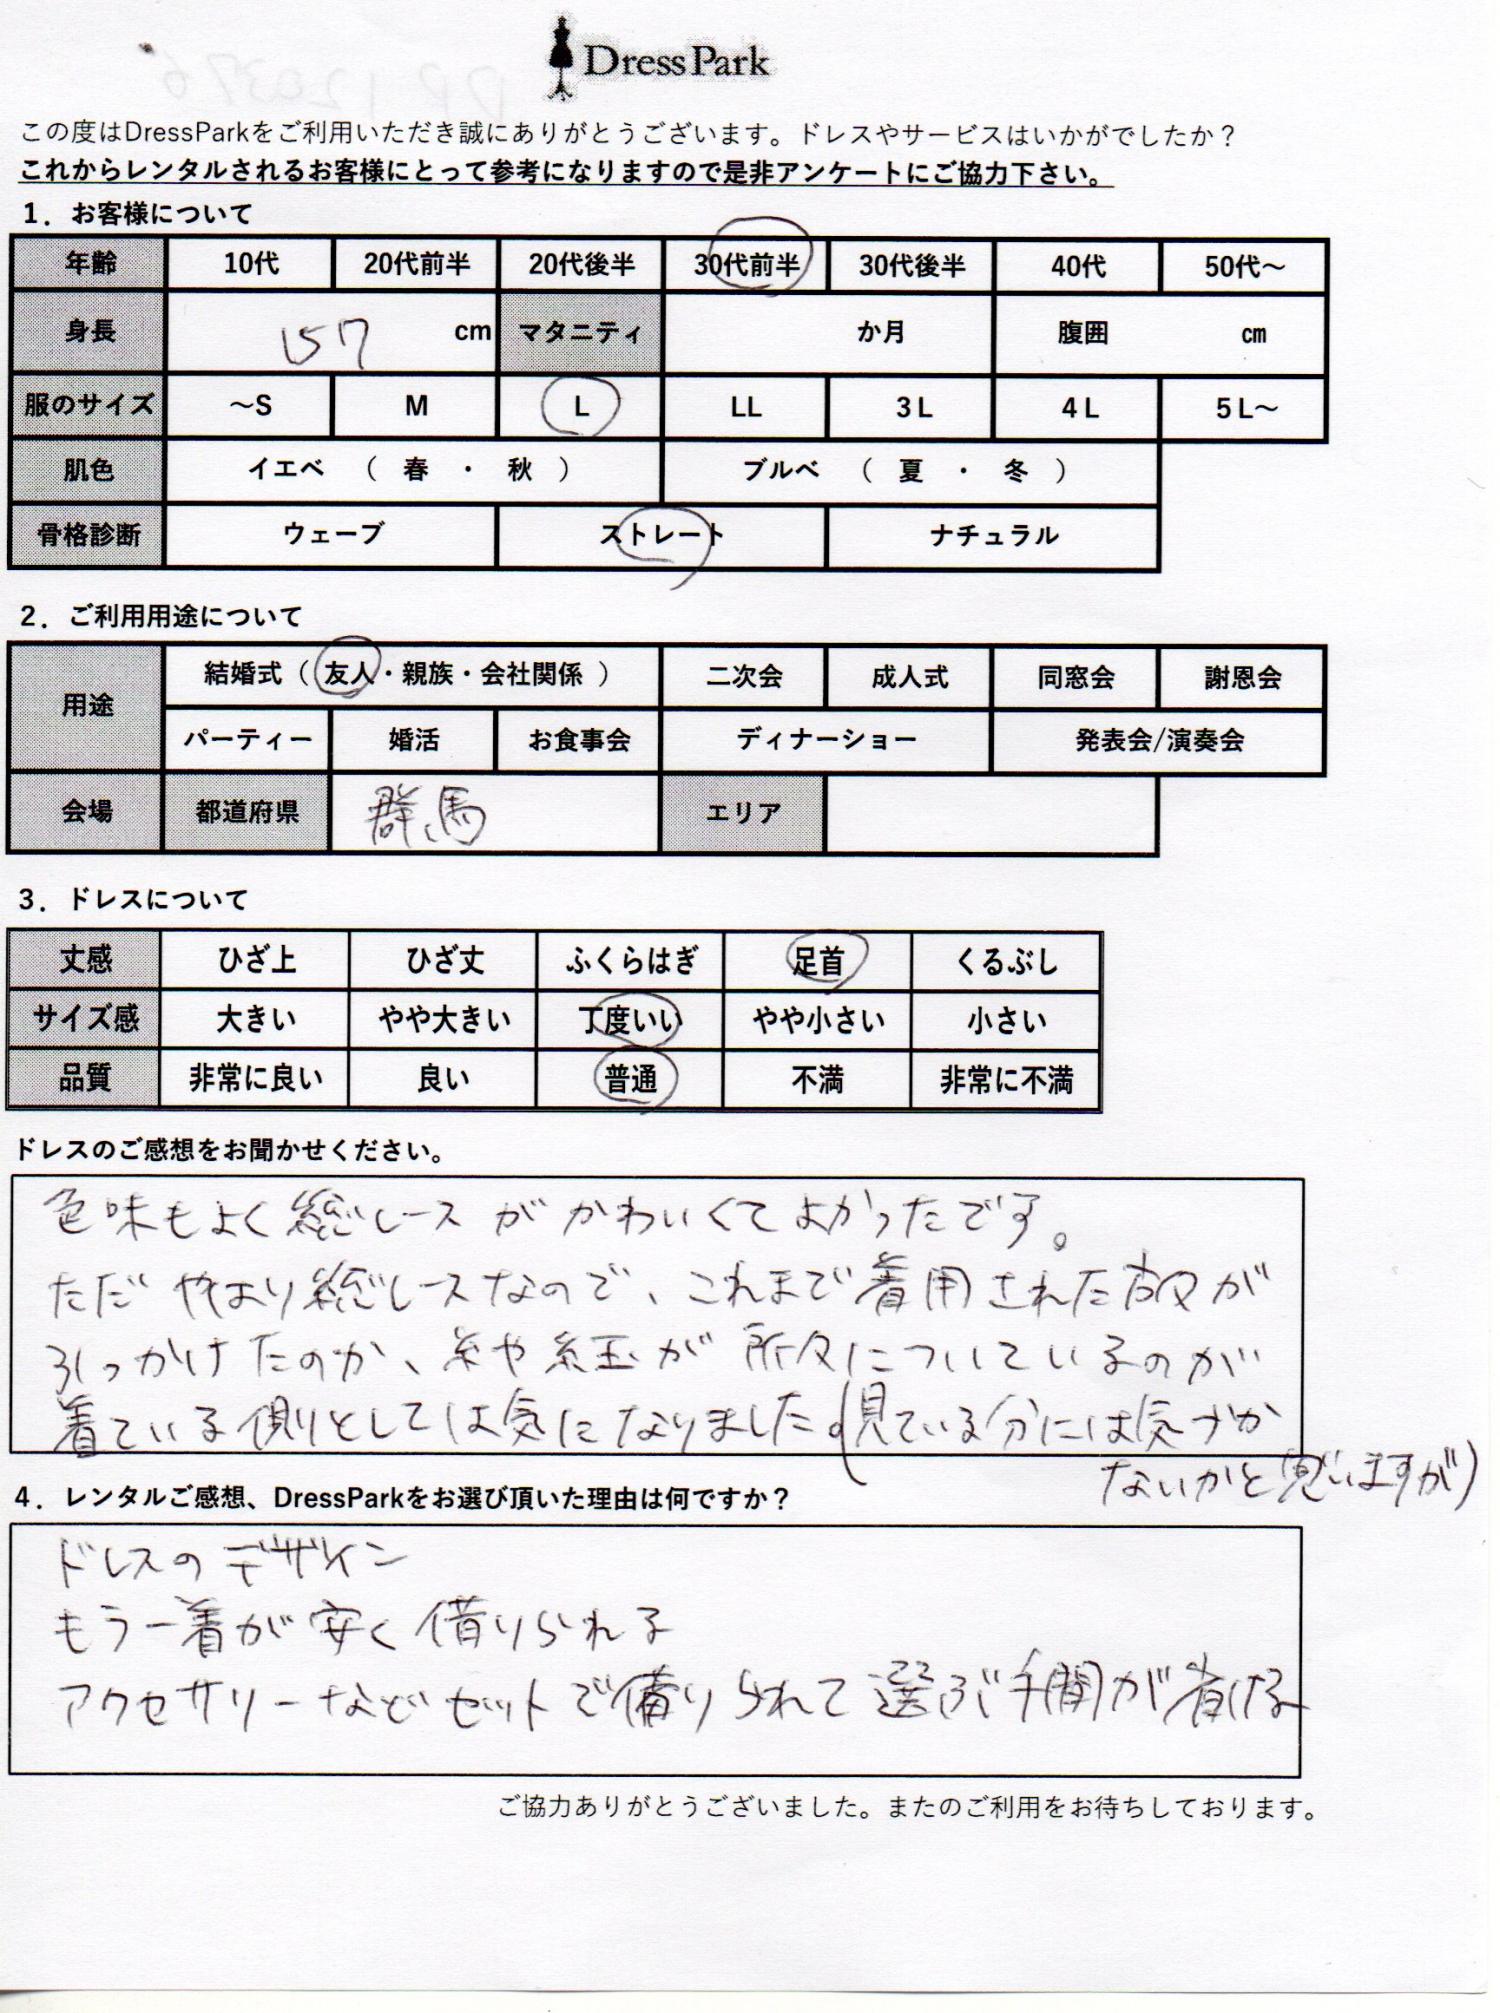 DressPark
この度はDressParkをご利用いただき誠にありがとうございます。ドレスやサービスはいかがでしたか？
これからレンタルされるお客様にとって参考になりますので是非アンケートにご協力下さい。
1．お客様について
年齢 10代 20代前半 20代後半 30代前半 30代後半 40代 50代～
身長 157 cm マタニティ か月 腹囲 ㎝
服のサイズ ～S M L LL 3L 4L 5L～
肌色 イエベ （ 春 ・ 秋 ） ブルベ （ 夏 ・ 冬 ）
骨格診断 ウェーブ ストレート ナチュラル
2．ご利用用途について
用途 結婚式（ 友人・親族・会社関係 ） 二次会 成人式 同窓会 謝恩会
パーティー 婚活 お食事会 ディナーショー 発表会/演奏会
会場 都道府県 群馬 エリア
3．ドレスについて
丈感 ひざ上 ひざ丈 ふくらはぎ 足首 くるぶし
サイズ感 大きい やや大きい 丁度いい やや小さい 小さい
品質 非常に良い 良い 普通 不満 非常に不満
ドレスのご感想をお聞かせください。
色味もよく総レースがかわいくてよかったです。
ただやはり総レースなので、これまで着用された方々が
引っかけたのか、糸や糸玉が所々についているのが
着ている側としては気になりました。(見ている分には気づか
ないかと思いますが)
4．レンタルご感想、DressParkをお選び頂いた理由は何ですか？
ドレスのデザイン
もう一着が安く借りられる
アクセサリーなどセットで借りられて選ぶ手間が省ける
ご協力ありがとうございました。またのご利用をお待ちしております。